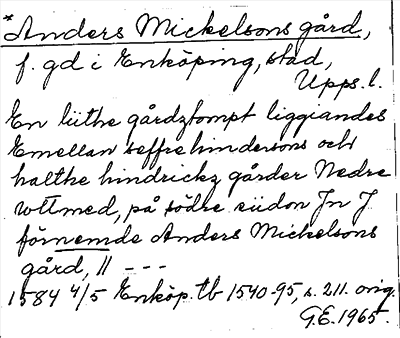 *Anders Mickelsons gård,
f. gd i Enköping, stad,
Upps. l.
En liithe gårdztompt liggiandes
Emellan seffre hindersons och
halthe hindrickz gårder Nedre
wttmed, på södre siidon Jn J
förnemde Anders Mickelsons
gård, || - - -
1584 4/5 Enköp. tb 1540-95, s. 211. orig.
G.E. 1965.